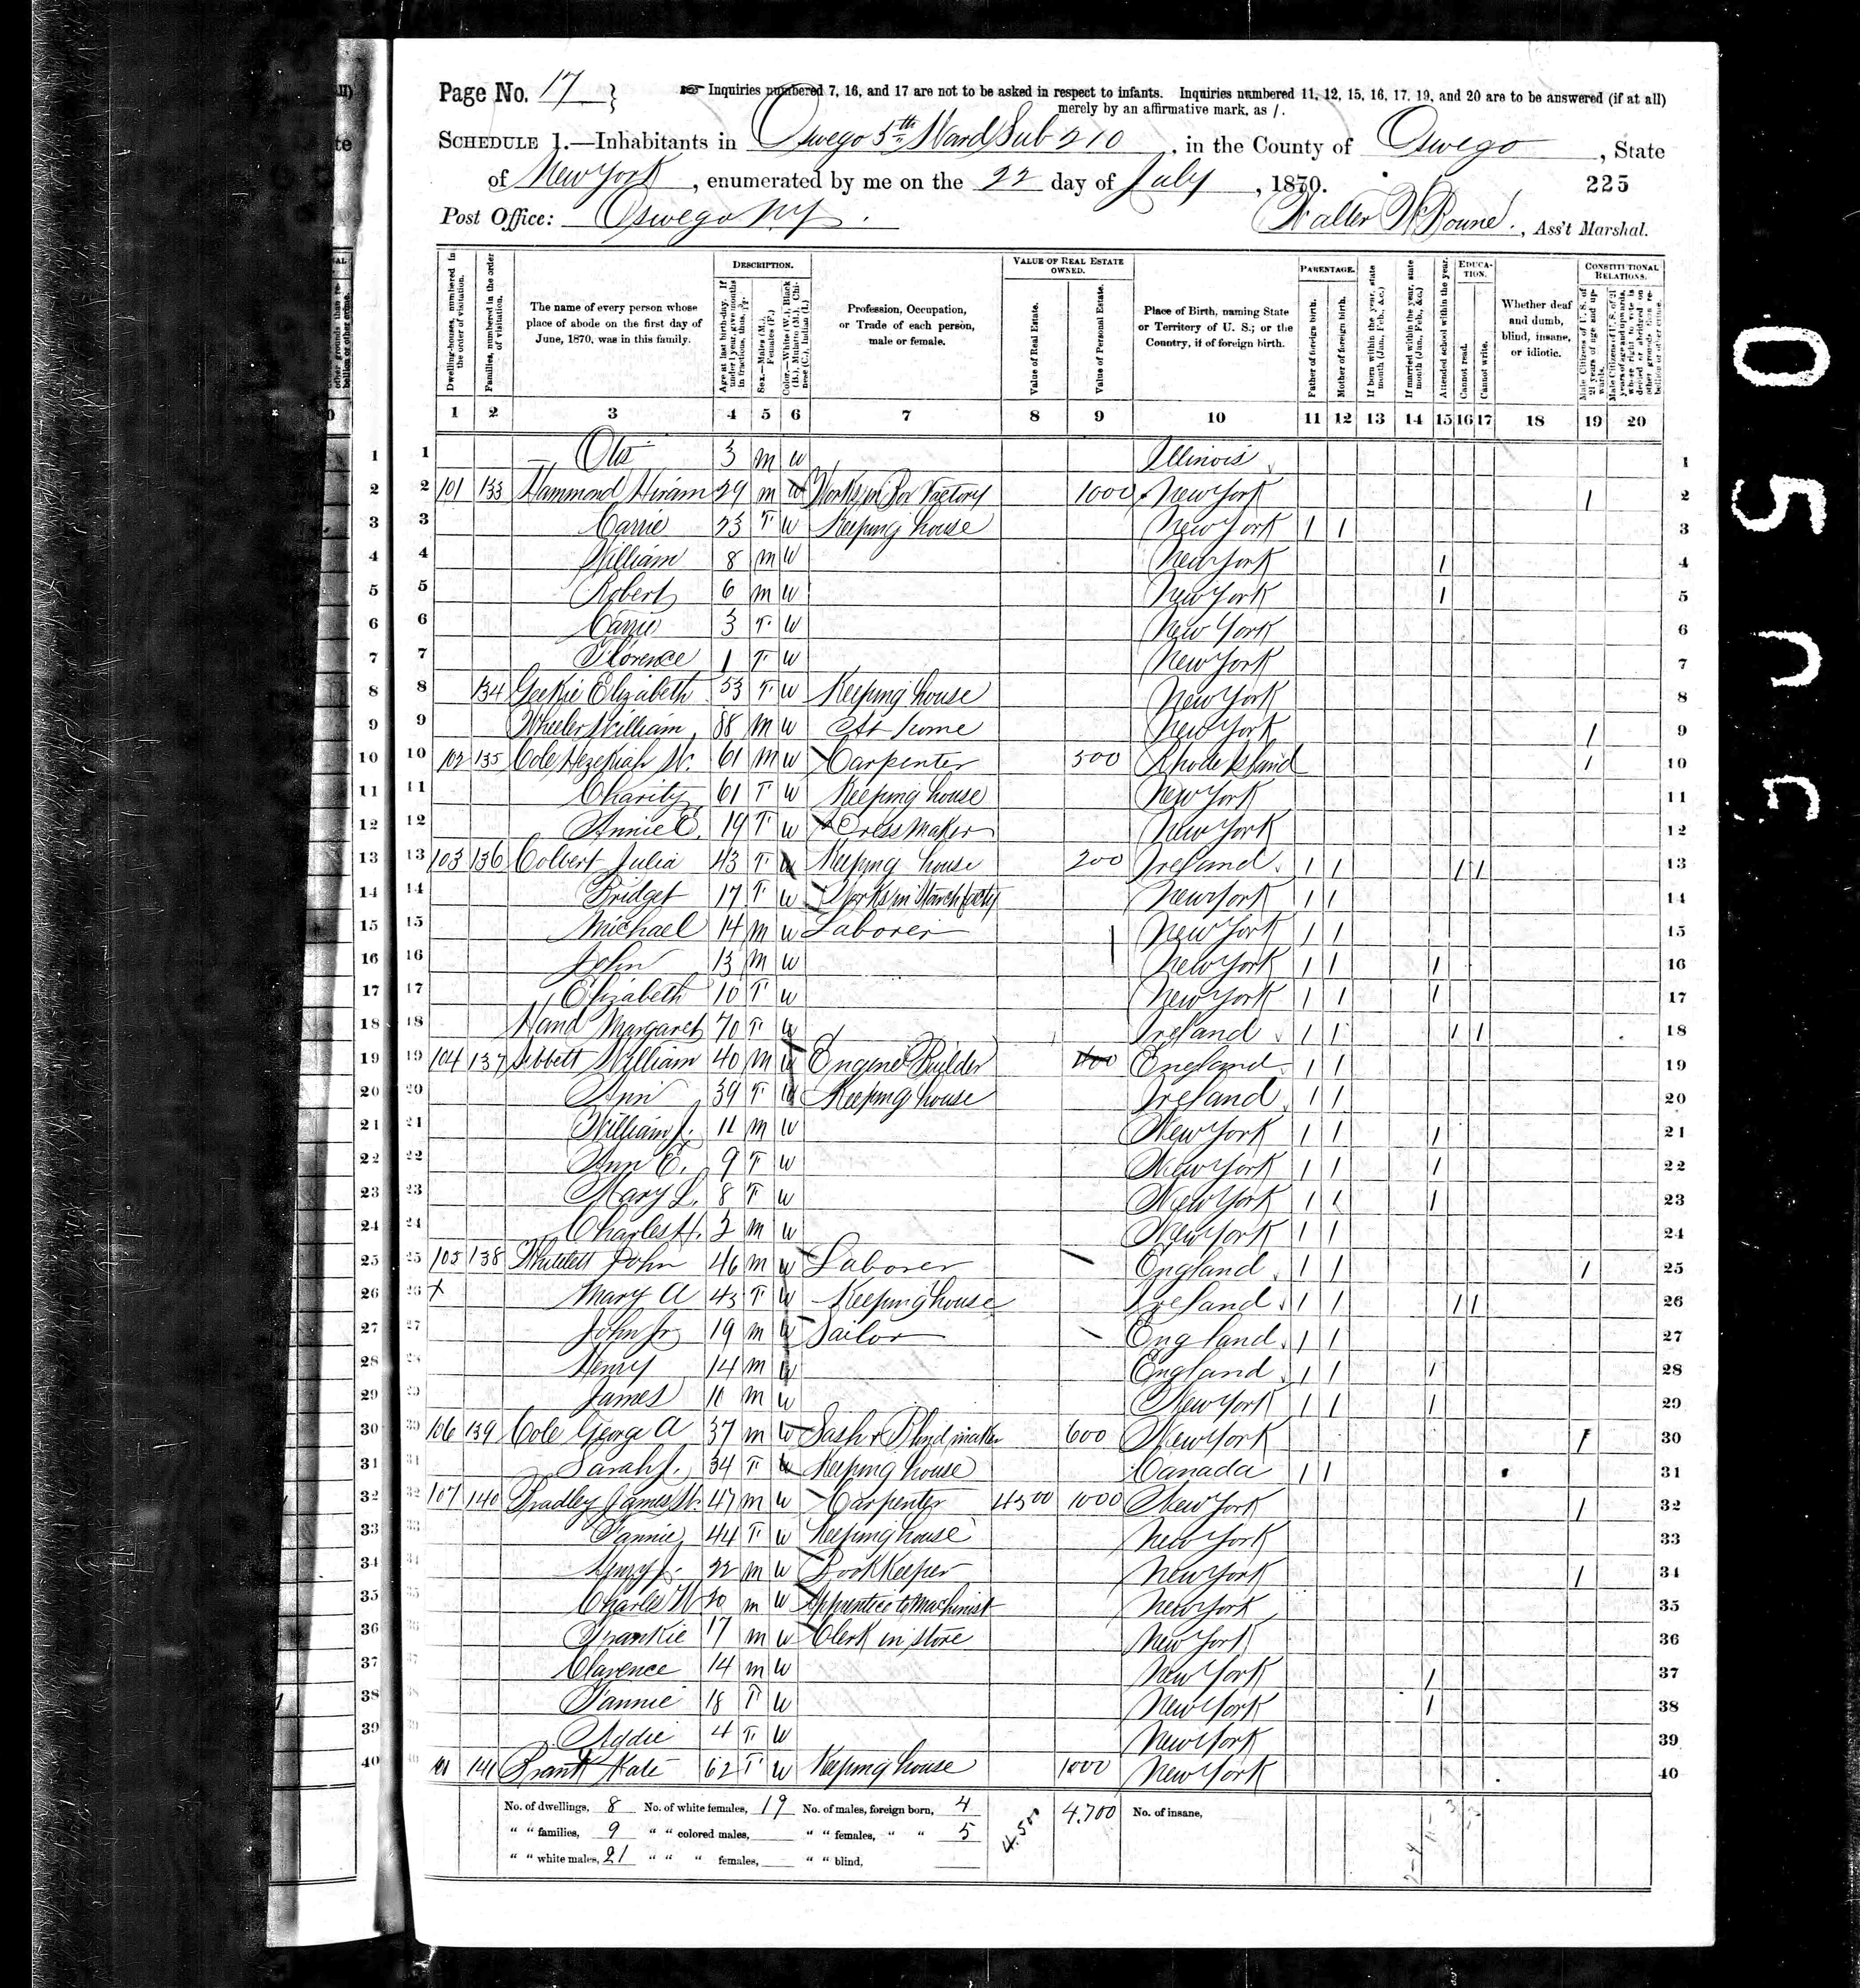 Page No. 17 } Inquiries numbered 7, 16, and 17 are not to be asked in respect to infants. Inquiries numbered 11, 12, 15, 16, 17, 19, and 20 are to be answered (if at all)
merely by an affirmative mark, as /.
SCHEDULE 1.—Inhabitants in Oswego 5th Ward Sub 210, in the County of Oswego, State
of New York, enumerated by me on the 22 day of July, 1870. 225
Post Office: Oswego NY. Walter, Ass't Marshal.
DESCRIPTION. VALUE OF REAL ESTATE OWNED. PARENTAGE. EDUCATION. CONSTITUTIONAL RELATIONS.
Dwelling-houses, numbered in the order of visitation.
Families, numbered in the order of visitation.
The name of every person whose place of abode on the first day of June, 1870, was in this family.
Age at last birth-day. If under 1 year, give months in fractions, thus, 3/12.
Sex.—Males (M.), Females (F.)
Color.—White (W.), Black (B.), Mulatto (M.), Chinese (C.), Indian (I.)
Profession, Occupation, or Trade of each person, male or female.
Value of Real Estate.
Value of Personal Estate.
Place of Birth, naming State or Territory of U. S.; or the Country, if of foreign birth.
Father of foreign birth.
Mother of foreign birth.
If born within the year, state month (Jan., Feb., &c.)
If married within the year, state month (Jan., Feb., &c.)
Attended school within the year.
Cannot read.
Cannot write.
Whether deaf and dumb, blind, insane, or idiotic.
Male Citizens of U. S. of 21 years of age and upwards.
Male Citizens of U. S. of 21 years of age and upwards, whose right to vote is denied or abridged on other grounds than rebellion or other crime.
1 2 3 4 5 6 7 8 9 10 11 12 13 14 15 16 17 18 19 20
1 — Otis 3 m W Illinois 1
2 101 133 Hammond Hiram 29 m W Works in Box Factory 1000 New York / 2
3 Carrie 23 F W Keeping house New York / / 3
4 William 8 m W New York / 4
5 Robert 6 m W New York / 5
6 Carrie 3 F W New York 6
7 Florence 1 F W New York 7
8 134 Geekie Elizabeth 53 F W Keeping house New York 8
9 Wheeler William 88 m W At home New York / 9
10 102 135 Cole Hezekiah W. 61 m W Carpenter 500 Rhode Island / 10
11 Charity 61 F W Keeping house New York 11
12 Annie E. 19 F W Dress Maker New York 12
13 103 136 Colbert Julia 43 F W Keeping house 200 Ireland / / / / 13
14 Bridget 17 F W Works in Starch facty New York / / 14
15 Michael 14 m W Laborer New York / / 15
16 John 13 m W New York / / / 16
17 Elizabeth 10 F W New York / / / 17
18 Hand Margaret 70 F W Ireland / / / / 18
19 104 137 Sibbett William 40 m W Engine Builder 400 England / / 19
20 Ann 39 F W Keeping house Ireland / / 20
21 William J. 11 m W New York / / / 21
22 Ann E. 9 F W New York / / / 22
23 Mary L. 8 F W New York / / / 23
24 Charles H. 2 m W New York / / 24
25 105 138 John 46 m W Laborer England / / / 25
26 x Mary A 43 F W Keeping house Ireland / / / / 26
27 John Jr 19 m W Sailor England / / 27
28 Henry 14 m W England / / / 28
29 James 10 m W New York / / / 29
30 106 139 Cole George A 37 m W Sash & Blind maker 600 New York / 30
31 Sarah J. 34 F W Keeping house Canada / / 31
32 107 140 Bradley James W. 47 m W Carpenter 4500 1000 New York / 32
33 Fannie 44 F W Keeping house New York 33
34 Henry J. 22 m W Book Keeper New York / 34
35 Charles W 20 m W Apprentice to Machinist New York 35
36 Frankie 17 m W Clerk in store New York 36
37 Clarence 14 m W New York / 37
38 Fannie 18 F W New York / 38
39 Addie 4 F W New York 39
40 141 Kate 62 F W Keeping house 1000 New York 40
No. of dwellings, 8 No. of white females, 19 No. of males, foreign born, 4 4.500 4.700 No. of insane,
" " families, 9 " " colored males, " " females, " " 5
" " white males, 21 " " " females, " " blind,